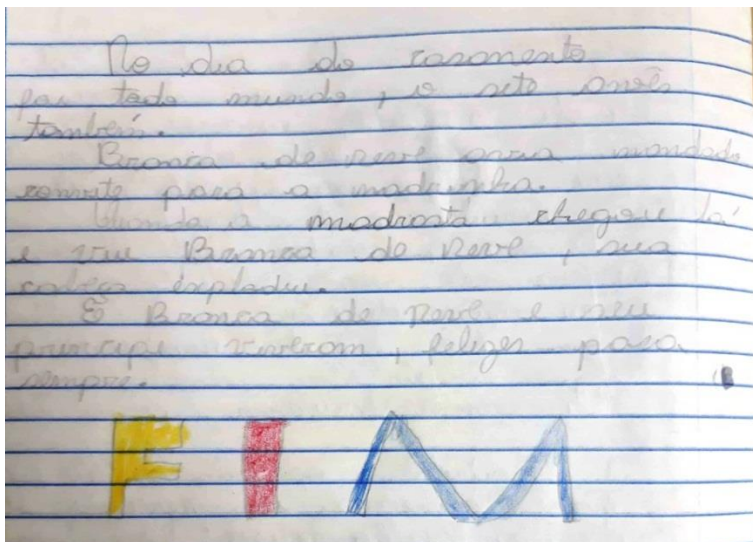 No dia do casamento
foi todo mundo, o sete anões
também.
Branca de neve avia mandado
convite para a madrinha.
Quando a madrasta chegou lá
e viu Branca de Neve, sua
cabeça explodiu.
E Branca de Neve e seu
principe viveram, felizes para
sempre.
FIM